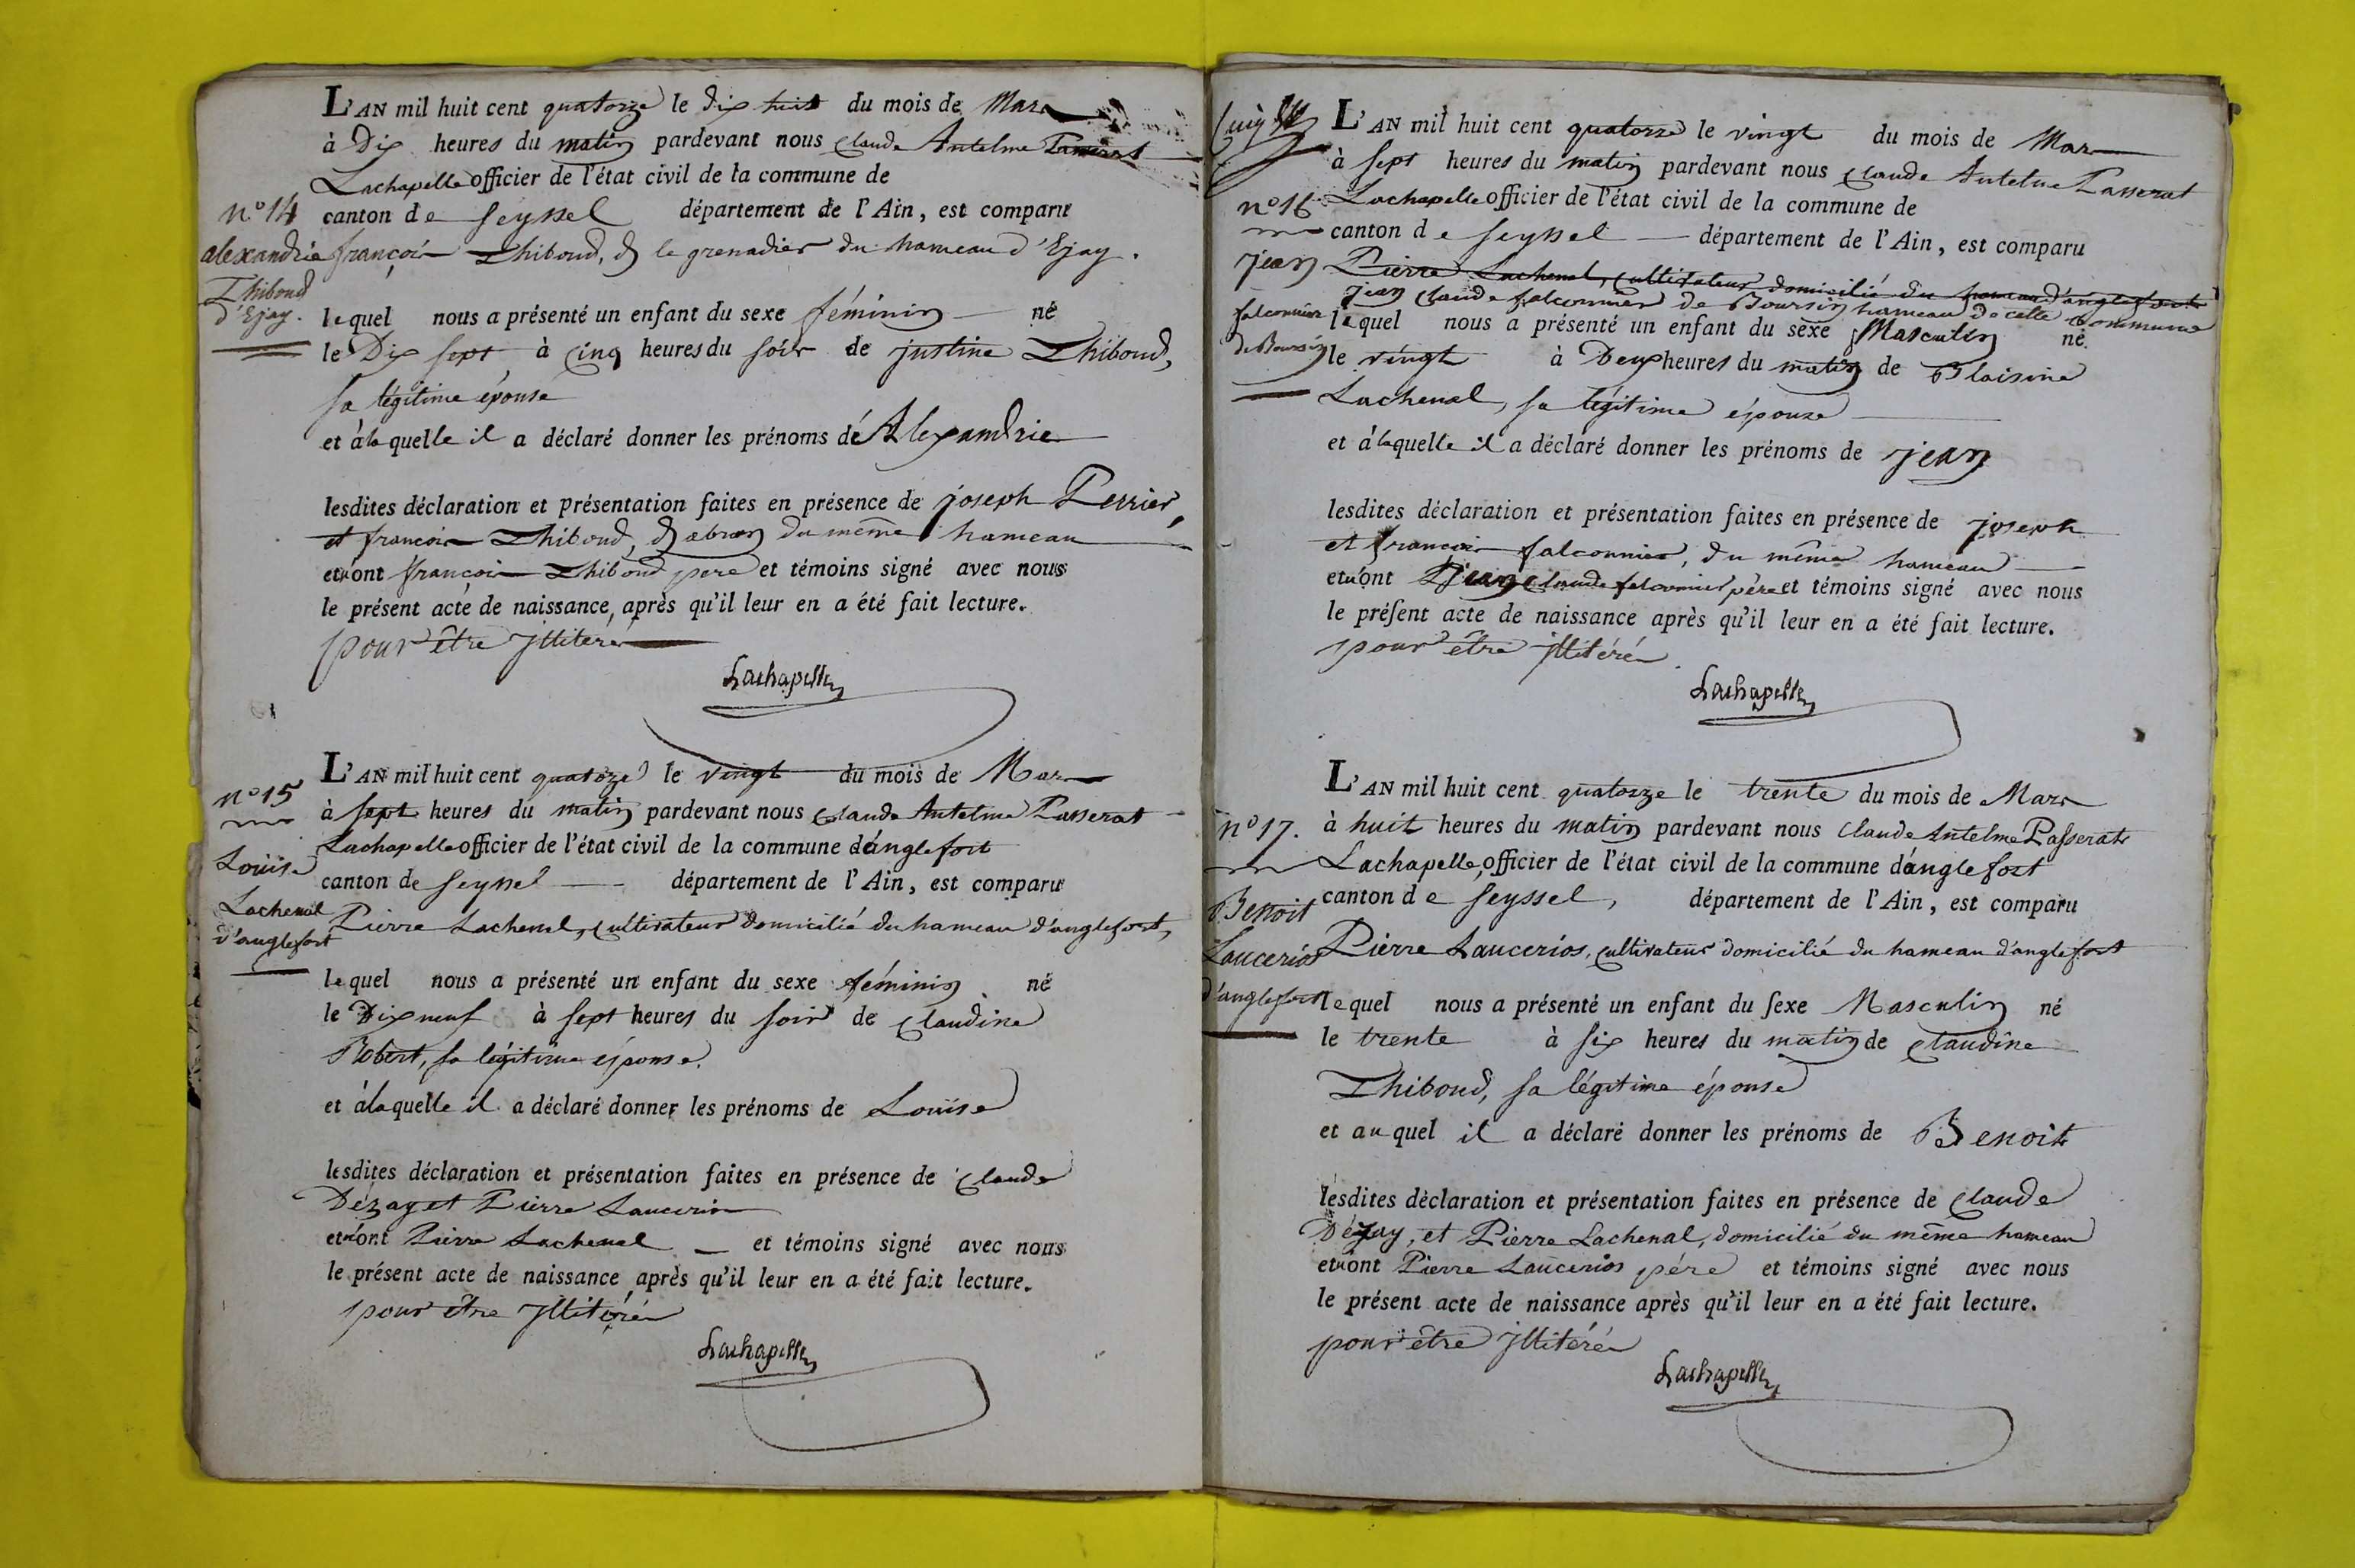 L'AN mil huit cent quatorze le dix huit du mois de Mars
à Dix heures du matin pardevant nous Claude Antelme Passerat
Lachapelle officier de l'état civil de la commune de
n° 14 canton de Seyssel département de l'Ain, est comparu
alexandrie françois Thiboud, dt le grenadier du hameau d'Ejay.
Thiboud
d'Ejay. lequel nous a présenté un enfant du sexe féminin né
le Dix sept à Cinq heures du soir de justine Thiboud,
sa légitime épouse
et à la quelle il a déclaré donner les prénoms de Alexandrie
lesdites déclaration et présentation faites en présence de joseph Perrier,
et françois Thiboud, du même hameau
et n'ont françois Thiboud pere et témoins signé avec nous
le présent acte de naissance, après qu'il leur en a été fait lecture.
pour être illiterés
Lachapelle
L'AN mil huit cent quatoze le vingt du mois de Mars
n° 15
à sept heures du matin pardevant nous Claude Antelme Passerat
Lachapelle officier de l'état civil de la commune d'anglefort
Louise
canton de Seyssel département de l'Ain, est comparu
Lachenal Pierre Lachenal, Cultivateur domicilié du hameau d'anglefort,
d'anglefort
lequel nous a présenté un enfant du sexe féminin né
le Dix neuf à sept heures du soir de Claudine
Robert, sa légitime épouse.
et à la quelle il a déclaré donner les prénoms de Louise
lesdites déclaration et présentation faites en présence de Claude
Dézay et Pierre Laucerios
et n'ont Pierre Lachenal et témoins signé avec nous
le présent acte de naissance après qu'il leur en a été fait lecture.
pour être illitérés
Lachapelle
L'AN mil huit cent quatorze le vingt du mois de Mars
à sept heures du matin pardevant nous Claude Antelme Passerat
n° 16 Lachapelle officier de l'état civil de la commune de
canton de Seyssel département de l'Ain, est comparu
jean Pierre Lachenal, Cultivateur domicilié du hameau d'anglefort
jean Claude falconnier de Boursin hameau de cette Commune
falconnier lequel nous a présenté un enfant du sexe Masculin né
de Boursin le vingt à Deux heures du matin de Blaisine
Lachenal, sa légitime épouse
et à la quelle il a déclaré donner les prénoms de jean
lesdites déclaration et présentation faites en présence de joseph
et françois falconnier, du même hameau
et n'ont jean Claude falconnier père et témoins signé avec nous
le présent acte de naissance après qu'il leur en a été fait lecture.
pour être illitérés
Lachapelle
L'AN mil huit cent quatorze le trente du mois de Mars
n° 17. à huit heures du matin pardevant nous Claude Antelme Passerat
Lachapelle, officier de l'état civil de la commune d'anglefort
canton de Seyssel, département de l'Ain, est comparu
Benoit
Laucerios Pierre Laucerios, Cultivateur domicilié du hameau d'anglefort
d'anglefort lequel nous a présenté un enfant du sexe Masculin né
le trente à six heures du matin de Claudine
Thiboud, sa légitime épouse
et au quel il a déclaré donner les prénoms de Benoit
lesdites déclaration et présentation faites en présence de Claude
Dézay, et Pierre Lachenal, domicilié du même hameau
et n'ont Pierre Laucerios père et témoins signé avec nous
le présent acte de naissance après qu'il leur en a été fait lecture.
pour être illitérés
Lachapelle